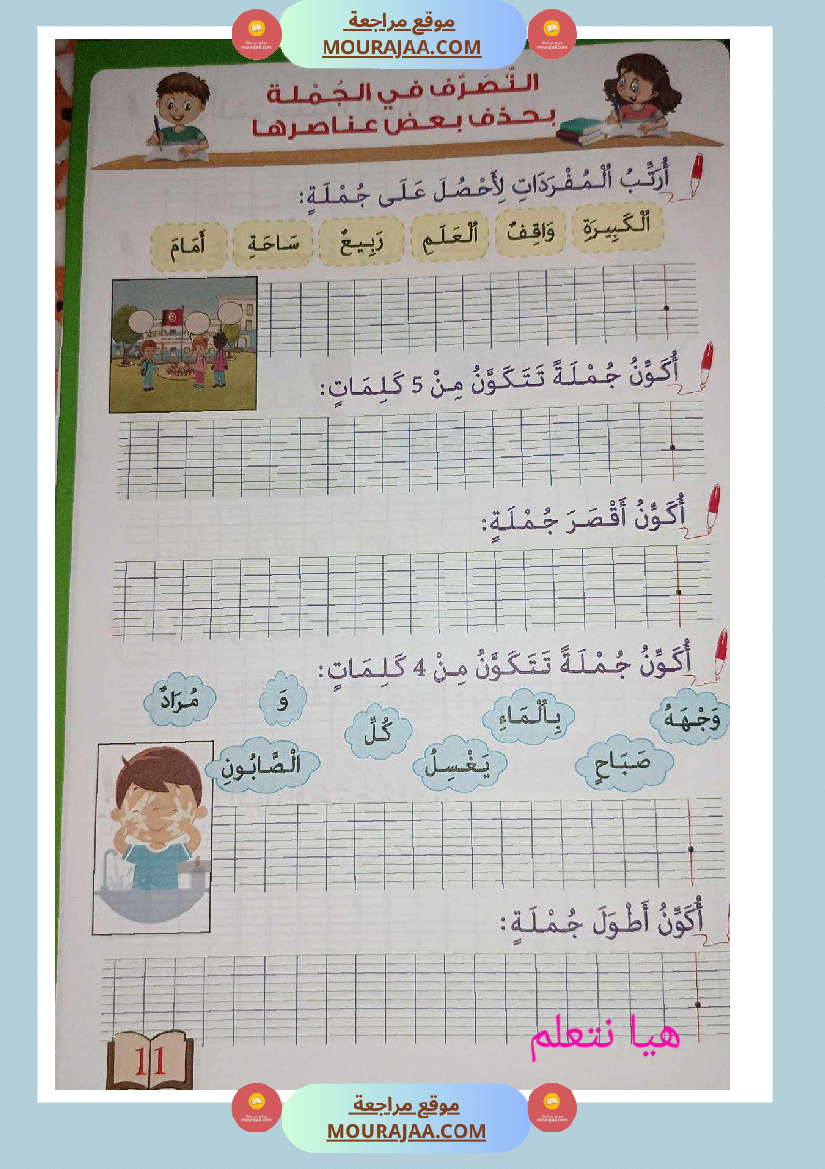 موقع مراجعة
MOURAJAA.COM
التَّصَرُّف في الجُمْلة
بحذف بعض عناصرها
أُرَتِّبُ ٱلْمُفْرَدَاتِ لِأَحْصُلَ عَلَى جُمْلَةٍ:
ٱلْكَبِيرَةِ وَاقِفٌ ٱلْعَلَمِ رَبِيعٌ سَاحَةِ أَمَامَ
أُكَوِّنُ جُمْلَةً تَتَكَوَّنُ مِنْ 5 كَلِمَاتٍ:
أُكَوِّنُ أَقْصَرَ جُمْلَةٍ:
أُكَوِّنُ جُمْلَةً تَتَكَوَّنُ مِنْ 4 كَلِمَاتٍ:
وَجْهَهُ بِٱلْمَاءِ كُلَّ وَ مُرَادٌ
صَبَاحٍ يَغْسِلُ الْصَّابُونِ
أُكَوِّنُ أَطْوَلَ جُمْلَةٍ:
هيا نتعلم
11
موقع مراجعة
MOURAJAA.COM